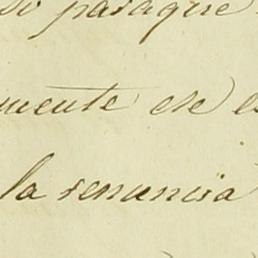 so paraque
mente ese e
la renuncia